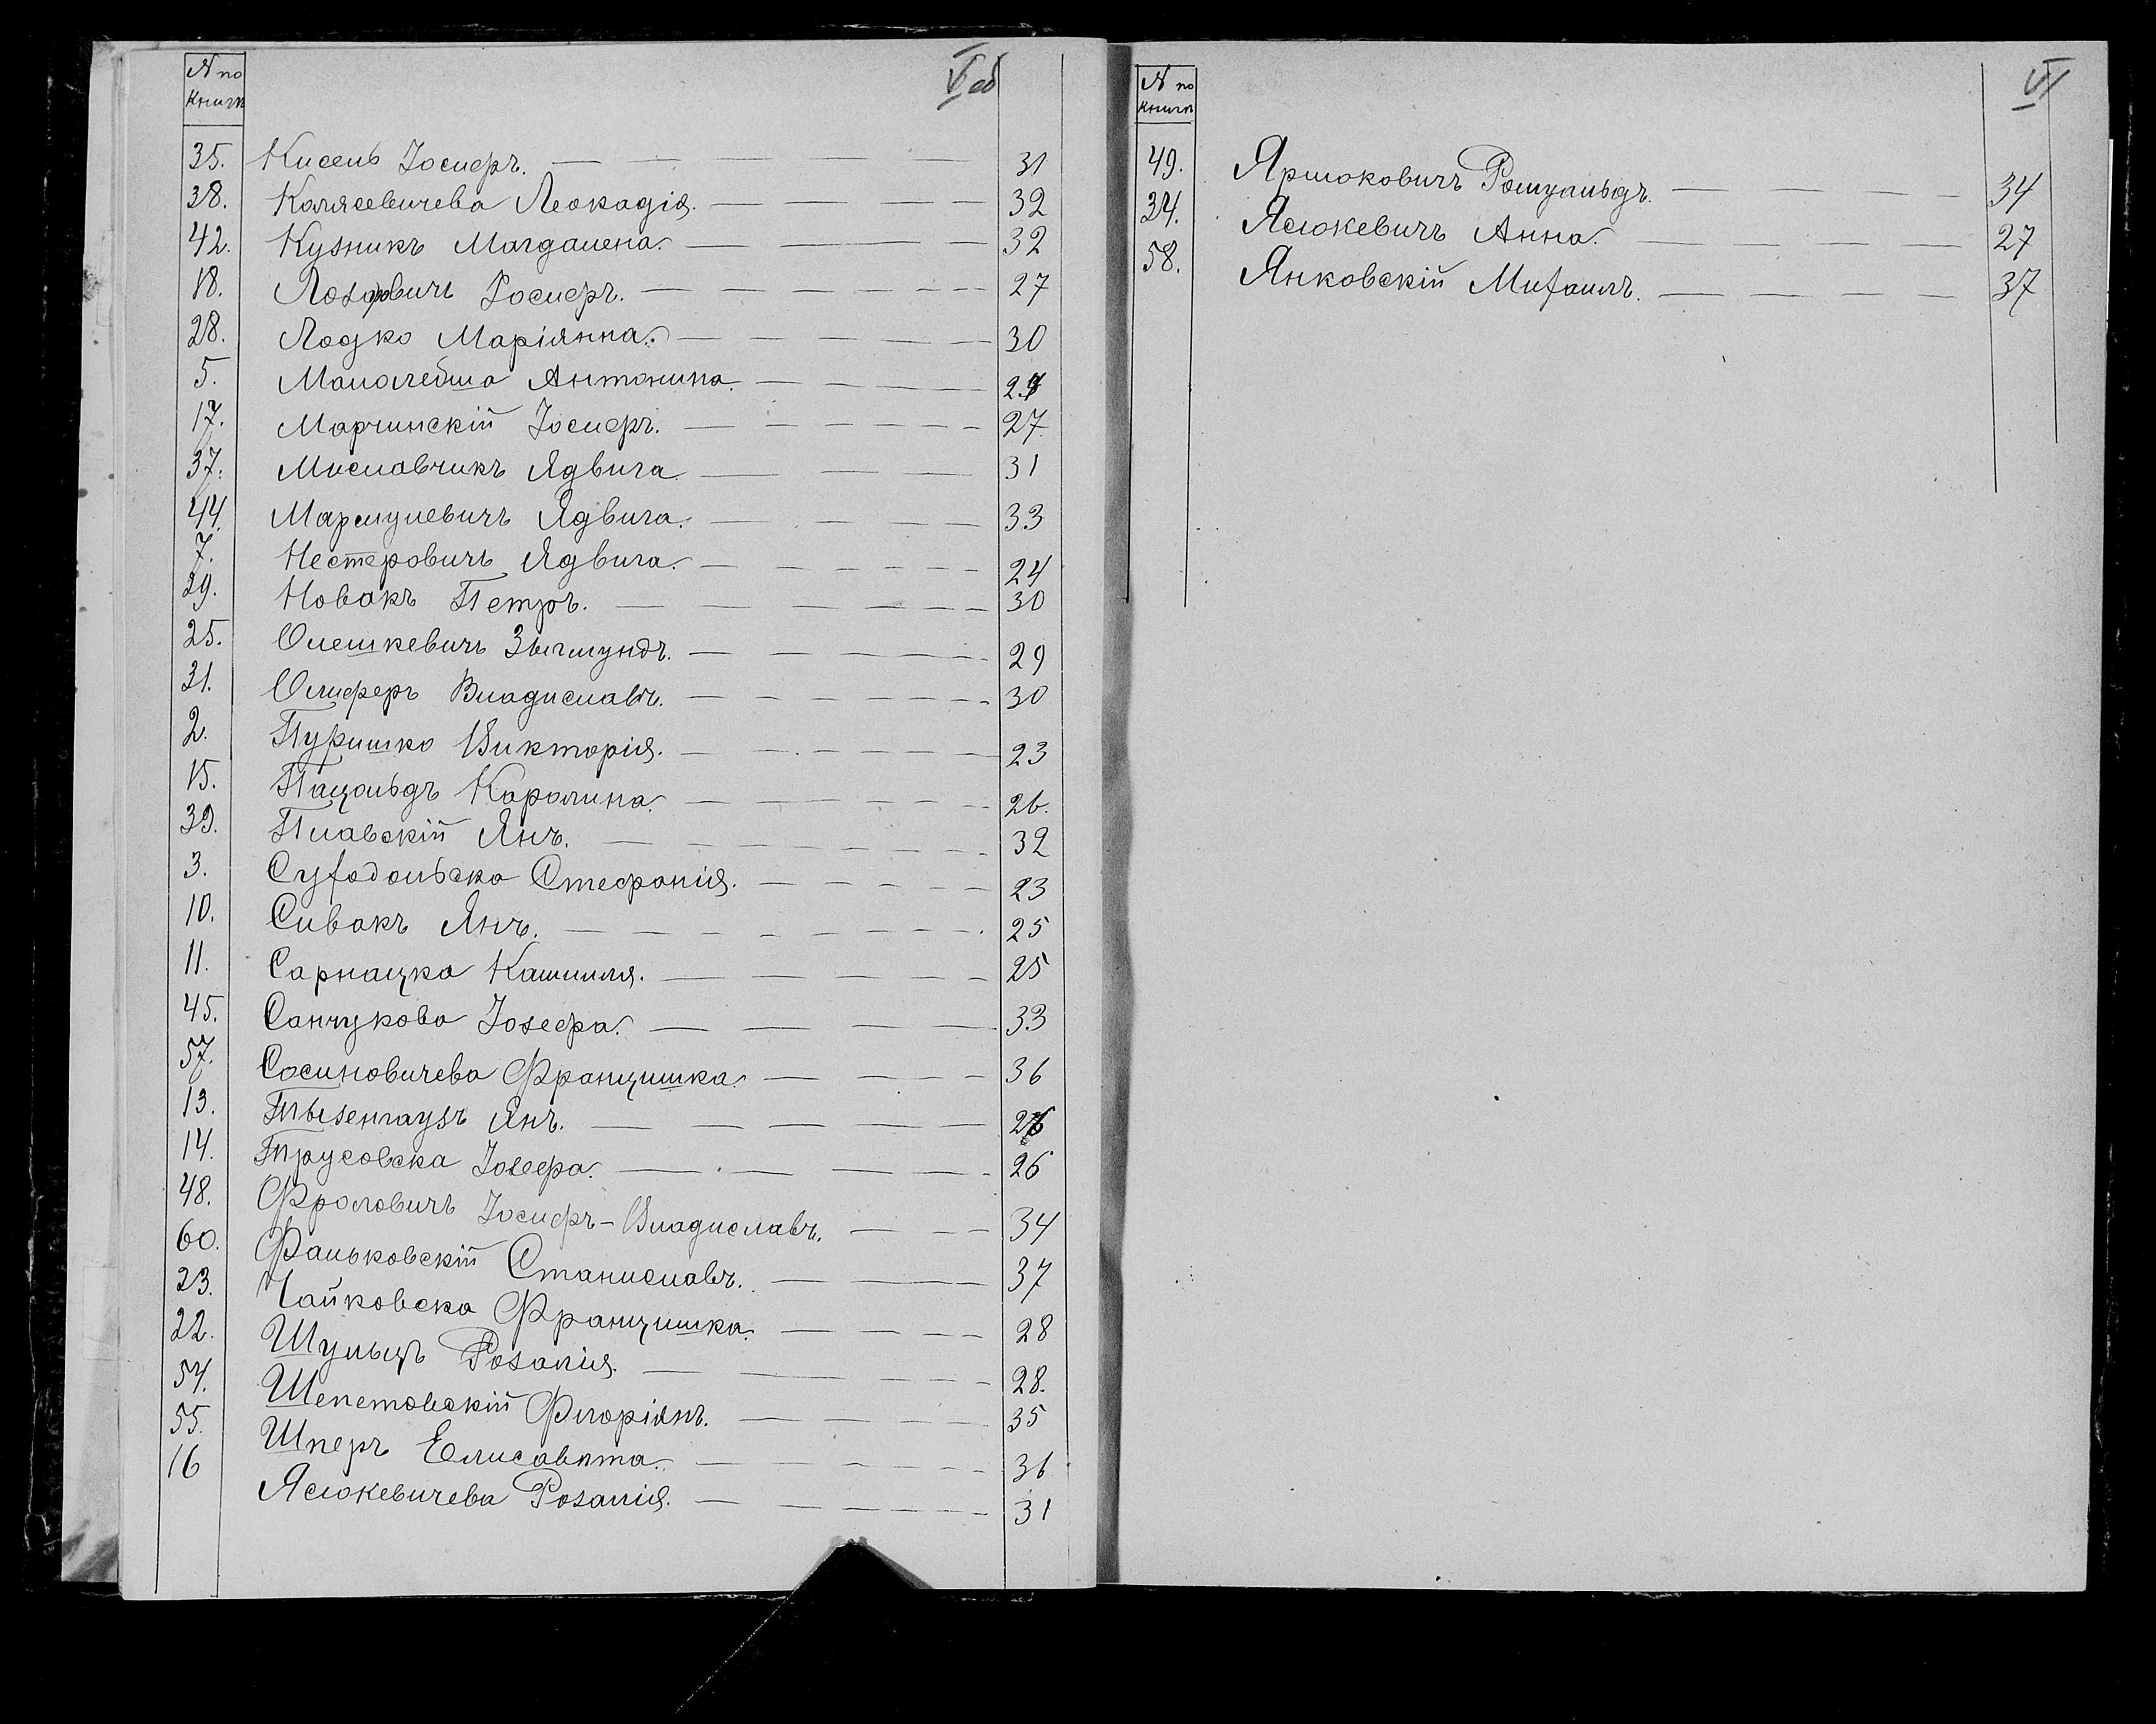 № по
книгѣ
V об
35. Кисель Іосифъ. 31
38. Калясевичева Леокадія. 32
42. Кузникъ Магдалена. 32
18. Лозаровичъ Іосифъ. 27
28. Лодко Маріянна. 30
5. Антонина.
17. Марчинскій Іосифъ. 27.
37. Миславчикъ Ядвига 31
44. Мармулевичъ Ядвига. 33
7. Нестеровичъ Ядвига. 24
29. Новакъ Петръ. 30
25. Олешкевичъ Зыгмундъ. 29
31. Олиферъ Владиславъ. 30
2. Пуришко Викторія. 23
15. Пацольдъ Каролина. 26.
39. Плавскій Янъ. 32
3. Суходольска Стефанія. 23
10. Сивакъ Янъ. 25
11. Сарнацка Камилля. 25
45. Санчукова Іозефа. 33
57. Сосиновичева Францишка. 36
13. Тызенгаузъ Янъ. 26
14. Трусовска Іозефа. 26
48. Фроловичъ Іосифъ-Владиславъ. 34
60. Фальковскій Станиславъ. 37
23. Чайковска Францишка. 28
22. Шульцъ Розалія. 28.
54. Шепетовскій Флоріянъ. 35
55. Шперъ Елисавѣта. 36
16 Ясюкевичева Розалія. 31
№ по
книгѣ
VI
49. Ярмоковичъ Ромуальдъ. 34
34. Ясюкевичъ Анна. 27
58. Янковскій Михаилъ. 37